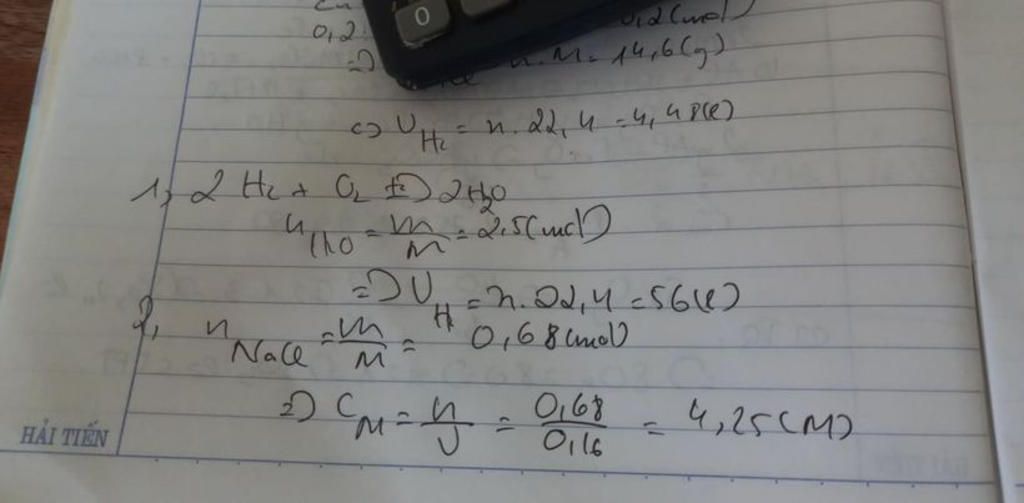 0
0,2 0,2 (mol)
=> n.M = 14,6 (g)
<=> V H2 = n. 22,4 = 4,48 (l)
1, 2 H2 + O2 => 2H2O
n H2O = m/M = 2,5 (mol)
=> V H2 = n. 22,4 = 56 (l)
2, n NaCl = m/M = 0,68 (mol)
=> C M = n/V = 0,68/0,16 = 4,25 (M)
HẢI TIẾN